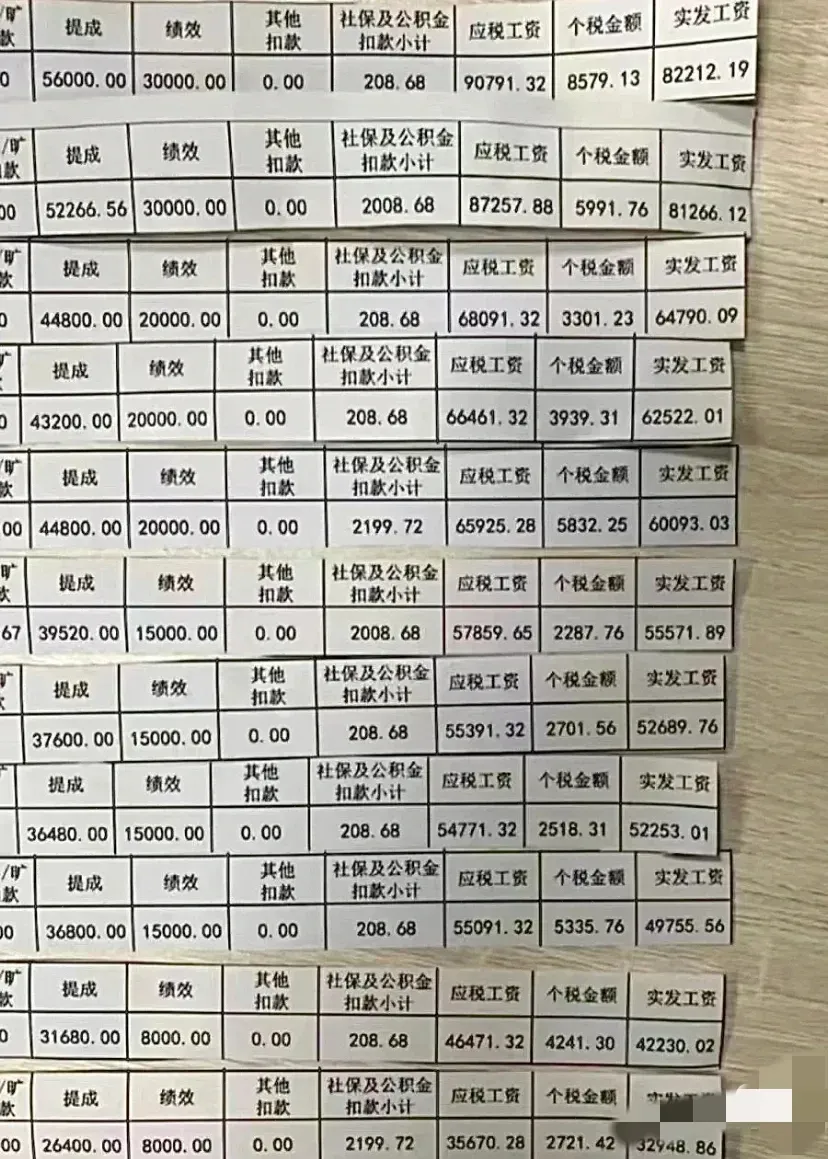 /旷 提成 绩效 其他 社保及公积金 应税工资 个税金额 实发工资
款 扣款 扣款小计
0 56000.00 30000.00 0.00 208.68 90791.32 8579.13 82212.19
/旷 提成 绩效 其他 社保及公积金 应税工资 个税金额 实发工资
款 扣款 扣款小计
00 52266.56 30000.00 0.00 2008.68 87257.88 5991.76 81266.12
/旷 提成 绩效 其他 社保及公积金 应税工资 个税金额 实发工资
款 扣款 扣款小计
0 44800.00 20000.00 0.00 208.68 68091.32 3301.23 64790.09
旷 提成 绩效 其他 社保及公积金 应税工资 个税金额 实发工资
扣款 扣款小计
0 43200.00 20000.00 0.00 208.68 66461.32 3939.31 62522.01
/旷 提成 绩效 其他 社保及公积金 应税工资 个税金额 实发工资
款 扣款 扣款小计
00 44800.00 20000.00 0.00 2199.72 65925.28 5832.25 60093.03
旷 提成 绩效 其他 社保及公积金 应税工资 个税金额 实发工资
款 扣款 扣款小计
67 39520.00 15000.00 0.00 2008.68 57859.65 2287.76 55571.89
旷 提成 绩效 其他 社保及公积金 应税工资 个税金额 实发工资
扣款 扣款小计
37600.00 15000.00 0.00 208.68 55391.32 2701.56 52689.76
提成 绩效 其他 社保及公积金 应税工资 个税金额 实发工资
扣款 扣款小计
36480.00 15000.00 0.00 208.68 54771.32 2518.31 52253.01
/旷 提成 绩效 其他 社保及公积金 应税工资 个税金额 实发工资
款 扣款 扣款小计
00 36800.00 15000.00 0.00 208.68 55091.32 5335.76 49755.56
/旷 提成 绩效 其他 社保及公积金 应税工资 个税金额 实发工资
款 扣款 扣款小计
0 31680.00 8000.00 0.00 208.68 46471.32 4241.30 42230.02
/旷 提成 绩效 其他 社保及公积金 应税工资 个税金额
款 扣款 扣款小计
00 26400.00 8000.00 0.00 2199.72 35670.28 2721.42 32948.86